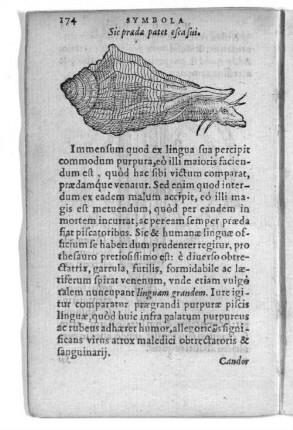 174 SYMBOLA
Sic præda patet esca sui.
Immensum quod ex lingua sua percipit
commodum purpura, eò illi maioris facien
dum est, quòd hac sibi victum comparat,
prædamque venatur. Sed enim quod inter-
dum ex eadem malum accipit, eò illi ma-
gis est metuendum, quòd per eandem in
mortem incurrat, ac peream semper præda
fiat piscatoribus. Sic & humanæ linguæ of-
ficium se habet: dum prudenter regitur, pro
thesauro pretiosissimo est: è diuerso obtre-
ctatrix, garrula, futilis, formidabile ac læ-
tiferum spirat venenum, vnde etiam vulgò
talem nuncupant linguam grandem. Iure igi-
tur comparatur prægrandi purpuræ piscis
linguæ, quòd huic infra palatum purpureus
ac rubeus adhæret humor, allegoricῶs signi-
ficans virus atrox maledici obtrectatoris &
sanguinarij.
Candor